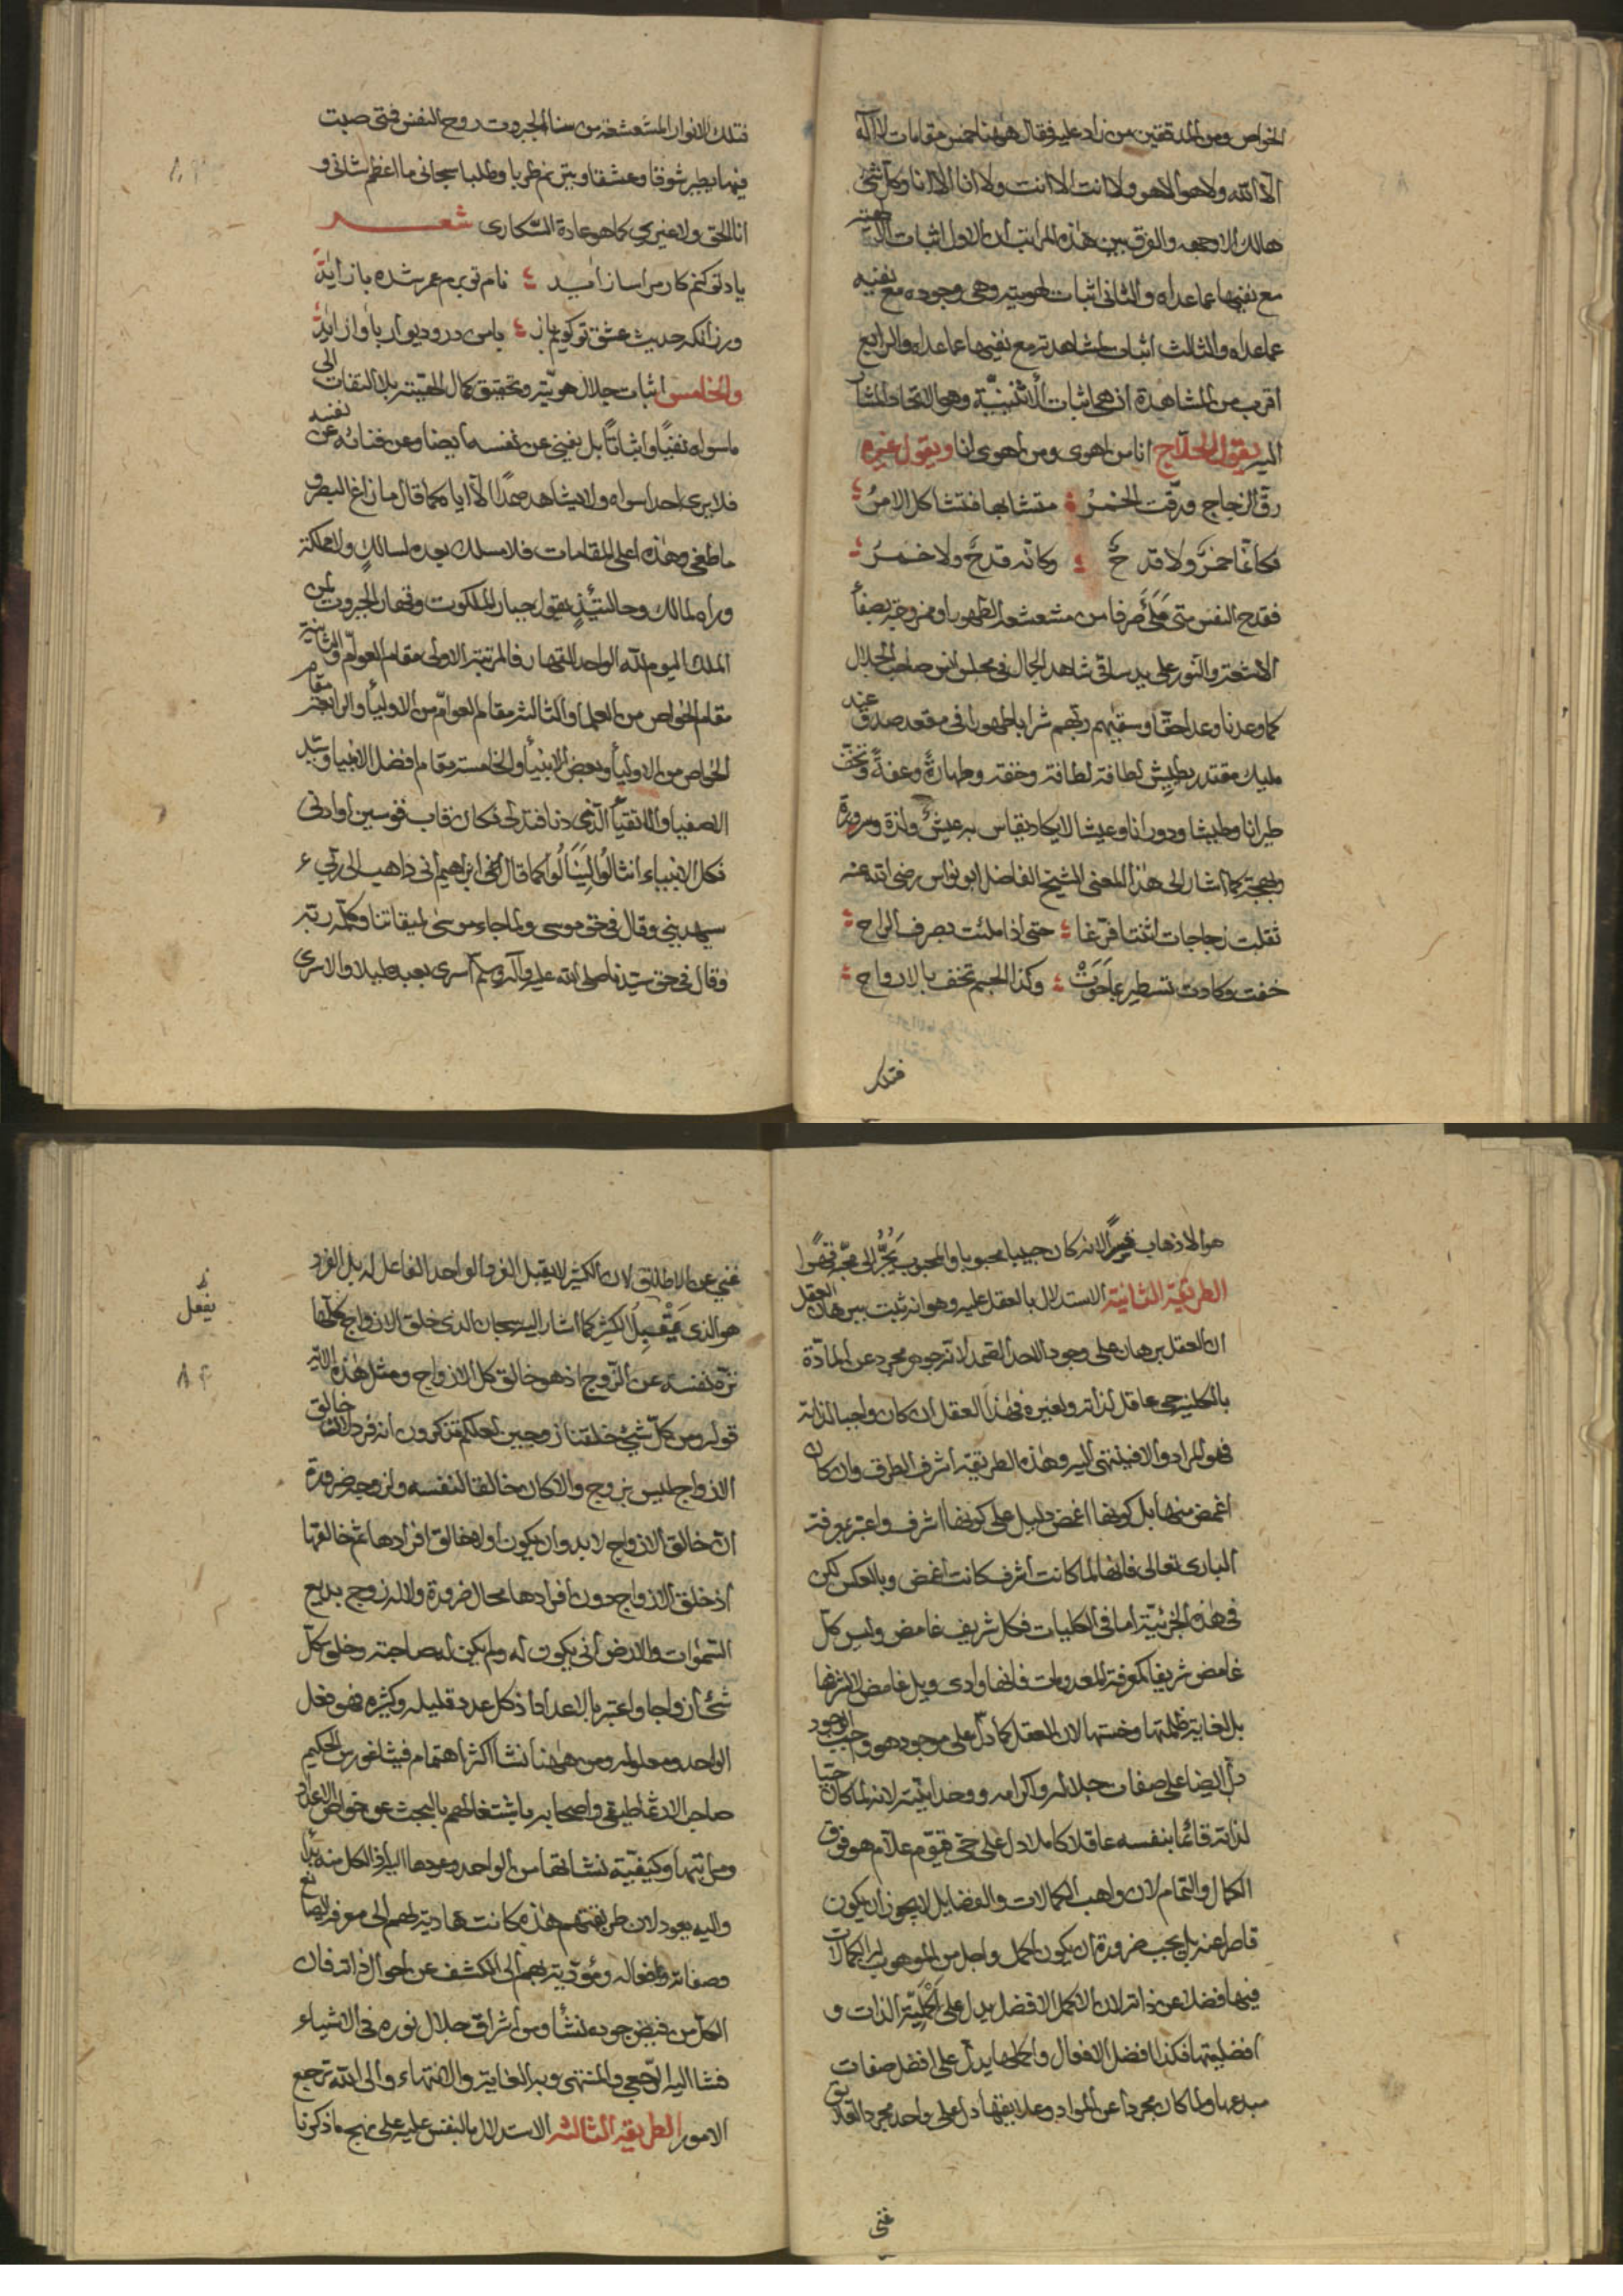 الخواص ومن المدققين من زاد عليه فقال هٰهنا خمس مقامات لا اله
الا الله ولا هو الا هو ولا انت الا انت ولا انا الا انا وكل شئ
هالك الا وجهه والفرق بين هذه المراتب ان الاول اثبات
مع نفيها عما عداه والثانى اثبات لهويته وهى وجوده مع نفيه
عما عداه والثالث اثبات لمشاهدته مع نفيها عما عداه والرابع
اقرب من المشاهدة اذ هى اثبات الاثنينية وهو الاتحاد المشار
اليه بقول الحلاج انا من اهوى ومن اهوى انا وبقول غيره
رق الزجاج ورقت الخمرُ متشابها فتشاكل الامرُ
فكأنما خمرٌ ولا قدحٌ وكانه قدحٌ ولا خمرُ
فقدح النفس متى ملئ صرفا من مشعشعه الظهور او ممزوجة بصفا
الاشعة والنور على يد ساقى شاهد الجمال فى مجلس انس صاحب الجلال
كما وعدنا وعدا حقا وسقيهم ربهم شرابا طهورا فى مقعد صدق عند
مليك مقتدر يطيش لطافة لطافة وخفة وطهارةً وعفةً
طيرانا وطيشا ودورانا وعيشا لا يكاد يقاس به عيشٌ ولذة وسرورة
وبهجة كما اشار الى هذا المعنى الشيخ الفاضل ابو نواس رضى الله عنه
ثقلت زجاجات اتتنا فرّغا حتى اذا ملئت بصرف الراح
خفت وكادت تستطير بما حَوَتْ وكذا الجسم تخف بالارواح
فتلك
فتلك الانوار المشعشعة من سنا الجبروت روح النفس فتى صبت
فيها يطير شوقا وعشقا ويترنم طربا وطلبا سبحانى ما اعظم شانى و
انا الحق ولا غيرى كما هو عادة السّكارى شعـــر
ياد تو كنم كار مرا ساز آميد نام تو برم عمر شده باز آيد
ورزانكه حديث عشق تو كويم باز با من در و ديوار باواز آيد
والخامس اثبات جلال هويته وتحقيق كمال الحقيقة بلا التفات الى
ما سواه نفيًا واثباتًا بل يغنى عن نفسه ايضا وعن فنائه عن نفسه
فلا يرى احدا سواه ولا يشاهد صمدًا الا اياه كما قال ما زاغ البصر و
ما طغى وهذه اعلى المقامات فلا مسلك بعده لسالكٍ ولا مملكة
وراه لمالك وحالتئذٍ يقول جبار الملكوت وقهار الجبروت لمن
الملك اليوم لله الواحد القهار فالمرتبة الاولى مقام العوامّ والثانية
مقام الخواص من العلما والثالثة مقام العوامّ من الاوليآ والرابعة مقام
الخواص من الاوليآ وبعض الانبيآ والخامسة مقام افضل الانبيا وسيد
الاصفيا والاتقيآ الذى دنا فتدلى فكان قاب قوسين او ادنى
فكل الانبياء كما قال فى ابراهيم انى ذاهب الى ربى
سيهدينى وقال فى حق موسى ولما جاء موسىٰ لميقاتنا وكلّمه ربه
وقال فى حق سيدنا صلى الله عليه وآله وسلّم اسرى بعبده ليلا والاسرى
هو الاذهاب لانه كان حبيبا محبوبا والمحبوب يُجَرُّ الى محبّه
الطريقة الثانية الاستدلال بالعقل عليه وهو انه ثبت ببرهان العقل
ان العقل برهان على وجود الاحد الصمد لانه جوهر مجرد عن المادّة
بالكلية حى عاقل لذاته ولغيره فهذا العقل ان كان واجبا لذاته
فهو المراد والا فينتهى اليه وهذه الطريقة اشرف الطرق وان كان
اغمض منها بل كونها اغمض دليل على كونها اشرف واعتبر بمعرفة
البارى تعالى فانها لما كانت اشرف كانت اغمض وبالعكس لكن
فى هذه الجزئيّة اما فى الكليات فكل شريف غامض وليس كلّ
غامض شريفا كمعرفة المعدومات فانها وادى ويل غامض لا لشرفها
بل لغاية ظلمتها وخستها لان العقل كما دلّ على موجود هو واجب الوجود
دل ايضا على صفات جلاله واكرامه ووحدانيته لانه لما كان حيّا
لذاته قائما بنفسه عاقلا كاملا دل على حىّ قيّوم علّام هو فوق
الكمال والتمام لان واهب الكمالات والفضايل لا يجوز ان يكون
قاصرا عنه بل يجب ضرورة ان يكون اكمل واجل من الموهوب له الكمالات
فيها فضلا عن ذاته لان الاكمل الافضل يدل على اكمليّة الذات و
افضليتها فكذا افضل الافعال واكملها يدلّ على افضل صفات
مبدعها ولما كان مجردا عن المواد وعلايقها دل على واحد مجرد العلايق
غنى
غنى عن الاطلاق لان الكثير لا يقبل الفرد الواحد الفاعل له بل الفرد
هو الذى يفعل الكثير كما اشار اليه سبحان الذى خلق الازواج كلّها
نزّه نفسه عن الزوج اذ هو خالق كل الازواج ومثل هذه الاية
قوله ومن كلّ شئ خلقنا زوجين لعلكم تذكرون انه فرد لانه خالق
الازواج ليس بزوج والا كان خالقا لنفسه ولزوجه ضرورة
ان خالق الازواج لا بد وان يكون اولا خالق افرادها ثم خالقها
اذ خلق الازواج دون افرادها محال ضرورة ولا له زوج بديع
السّموات والارض انى يكون له ولد ولم يكن له صاحبة وخلق كلّ
شئ ازواجا واعتبر بالاعداد اذ كل عدد قليله وكثيره فهو فعل
الواحد ومعلوله ومن ههنا نشا اكثر اهتمام فيثاغورس الحكيم
صاحب الارثماطيقى واصحابه باشتغالهم بالبحث عن خواص الاعداد
ومراتبها وكيفيّة نشاتها من الواحد وعودها اليه اذ الكل منه بدأ
واليه يعود لان طريقتهم هذه كانت هادية لهم الى معرفة الصانع
وصفاته وافعاله ومؤدّية بهم الى الكشف عن احوال ذاته فان
الكل من فيض جوده نشأ ومن اشراق جلال نوره فى الاشياء
فشا اليه الرّجعى والمنتهى وبه الغاية والانتهاء والى الله ترجع
الامور الطريقة الثالثة الاستدلال بالنفس عليه على نهج ما ذكرنا
يفعل
٨٤